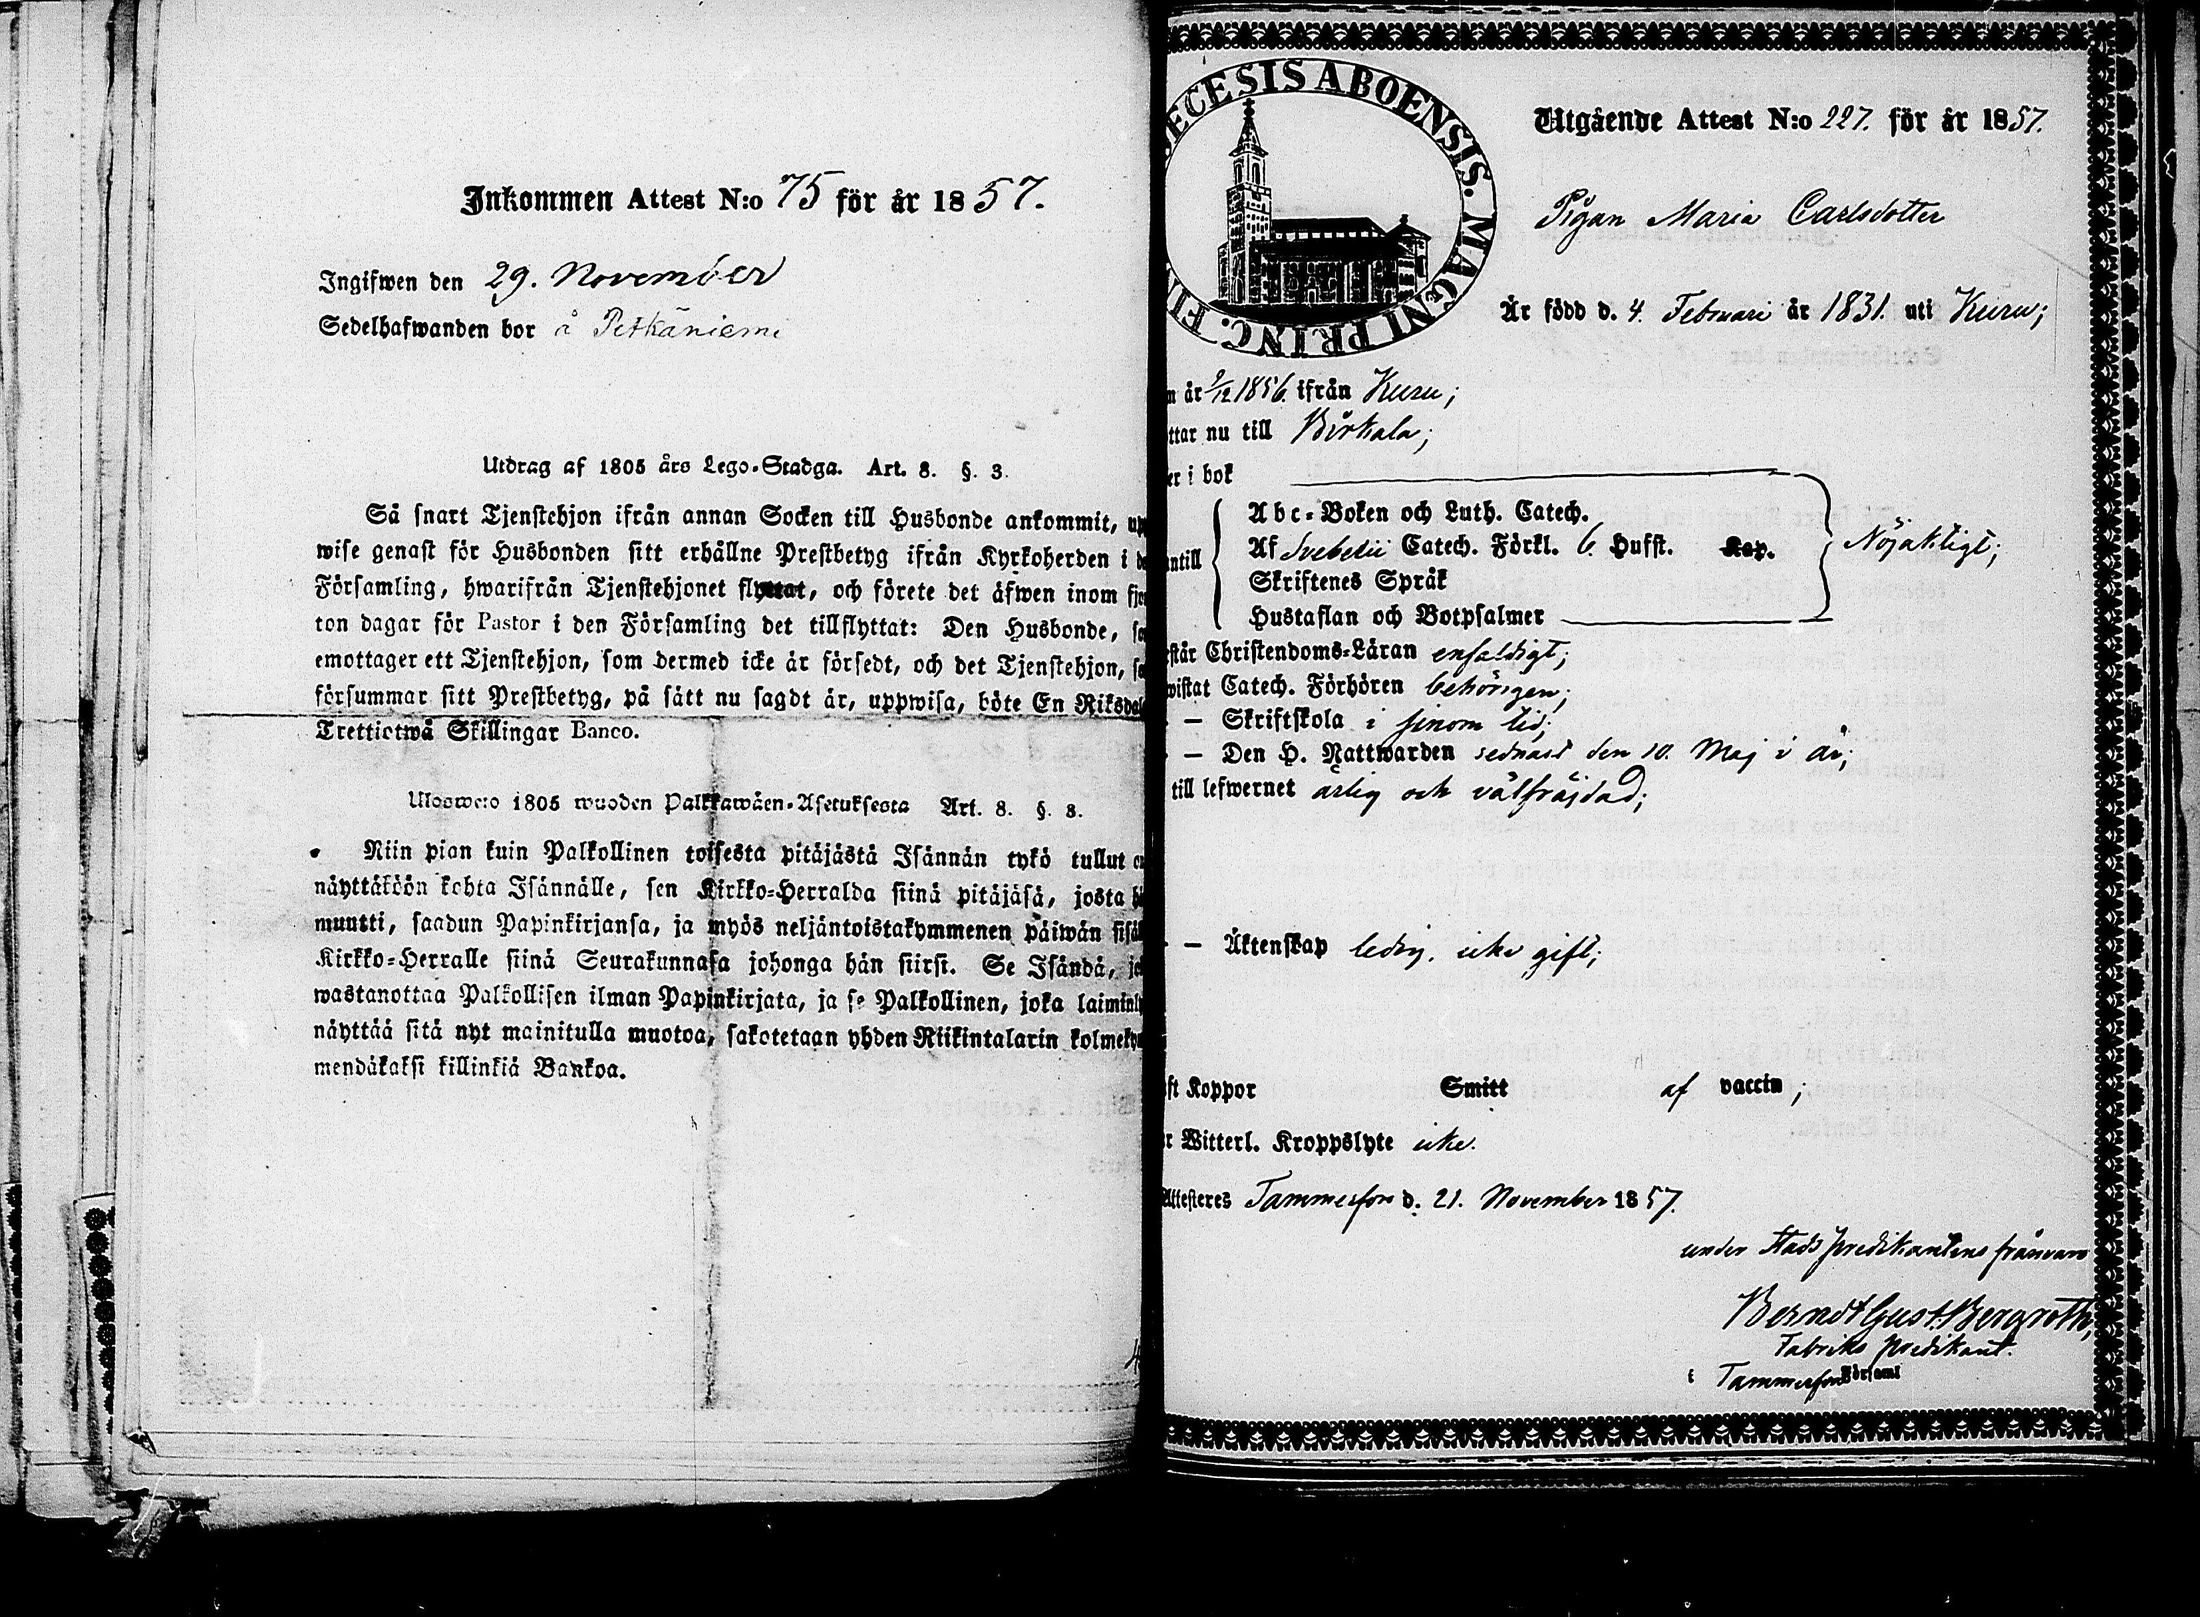 Inkommen Attest N:o 75 för år 1857.
Ingifwen den 29. November
Sedelhafwanden bor å Petkäniemi
Utdrag af 1805 års Lego-Stadga. Art. 8. §. 3.
Så snart Tjenstehjon ifrån annan Socken till Husbonde ankommit, upp
wise genast för Husbonden sitt erhållne Prestbetyg ifrån Kyrkoherden i de
Församling, hwarifrån Tjenstehjonet flyttat, och förete det äfwen inom fjor
ton dagar för Pastor i den Församling det tillflyttat: Den Husbonde, so
emottager ett Tjenstehjon, som dermed icke är försedt, och det Tjenstehjon, so
försummar sitt Prestbetyg, på sätt nu sagdt är, uppwisa, böte En Riksdal
Trettiotwå Skillingar Banco.
Ulosweto 1805 wuoden Palkkawäen-Asetuksesta Art. 8. §. 3.
Niin pian kuin Palkollinen toisesta pitäjästä Isännän tykö tullut on
näyttäköön kohta Isännälle, sen Kirkko-Herralda siinä pitäjäsä, josta hä
muutti, saadun Papinkirjansa, ja myös neljäntoistakymmenen päiwän sisäl
Kirkko-Herralle siinä Seurakunnasa johonga hän siirsi. Se Isändä, jo
wastanottaa Palkollisen ilman Papinkirjata, ja se Palkollinen, joka laiminly
näyttää sitä nyt mainitulla muotoa, sakotetaan yhden Riikintalarin kolmeky
mendäkaksi killinkiä Bankoa.
ECESIS ABOENSIS. MAGNI PRINC. FI
Utgående Attest N:o 227. för år 1857.
Pigan Maria Carlsdotter
Är född d. 4. Februari år 1831. uti Kuru;
m år 9/12 1856. ifrån Kuru;
ttar nu till Birkala;
er i bok
Abc-Boken och Luth. Catech.
antill Af Svebelii Catech. Förkl. 6. Hufst. Kap. Nöjaktigt;
Skriftenes Språk
Hustaflan och Botpsalmer
står Christendoms-Läran enfaldigt;
wistat Catech. Förhören behörigen;
— Skriftskola i sinom tid;
— Den H. Nattwarden sednast den 10. Maj i år;
till lefwernet ärlig och välfräjdad;
— Äktenskap ledig, icke gift;
ft Koppor Smitt af vaccin;
r Witterl. Kroppslyte icke.
Attesteres Tammerfors d. 21. November 1857.
under Stads predikantens frånvaro
Berndt Gust. Bergroth,
Fabriks predikant.
i Tammerfors Församl